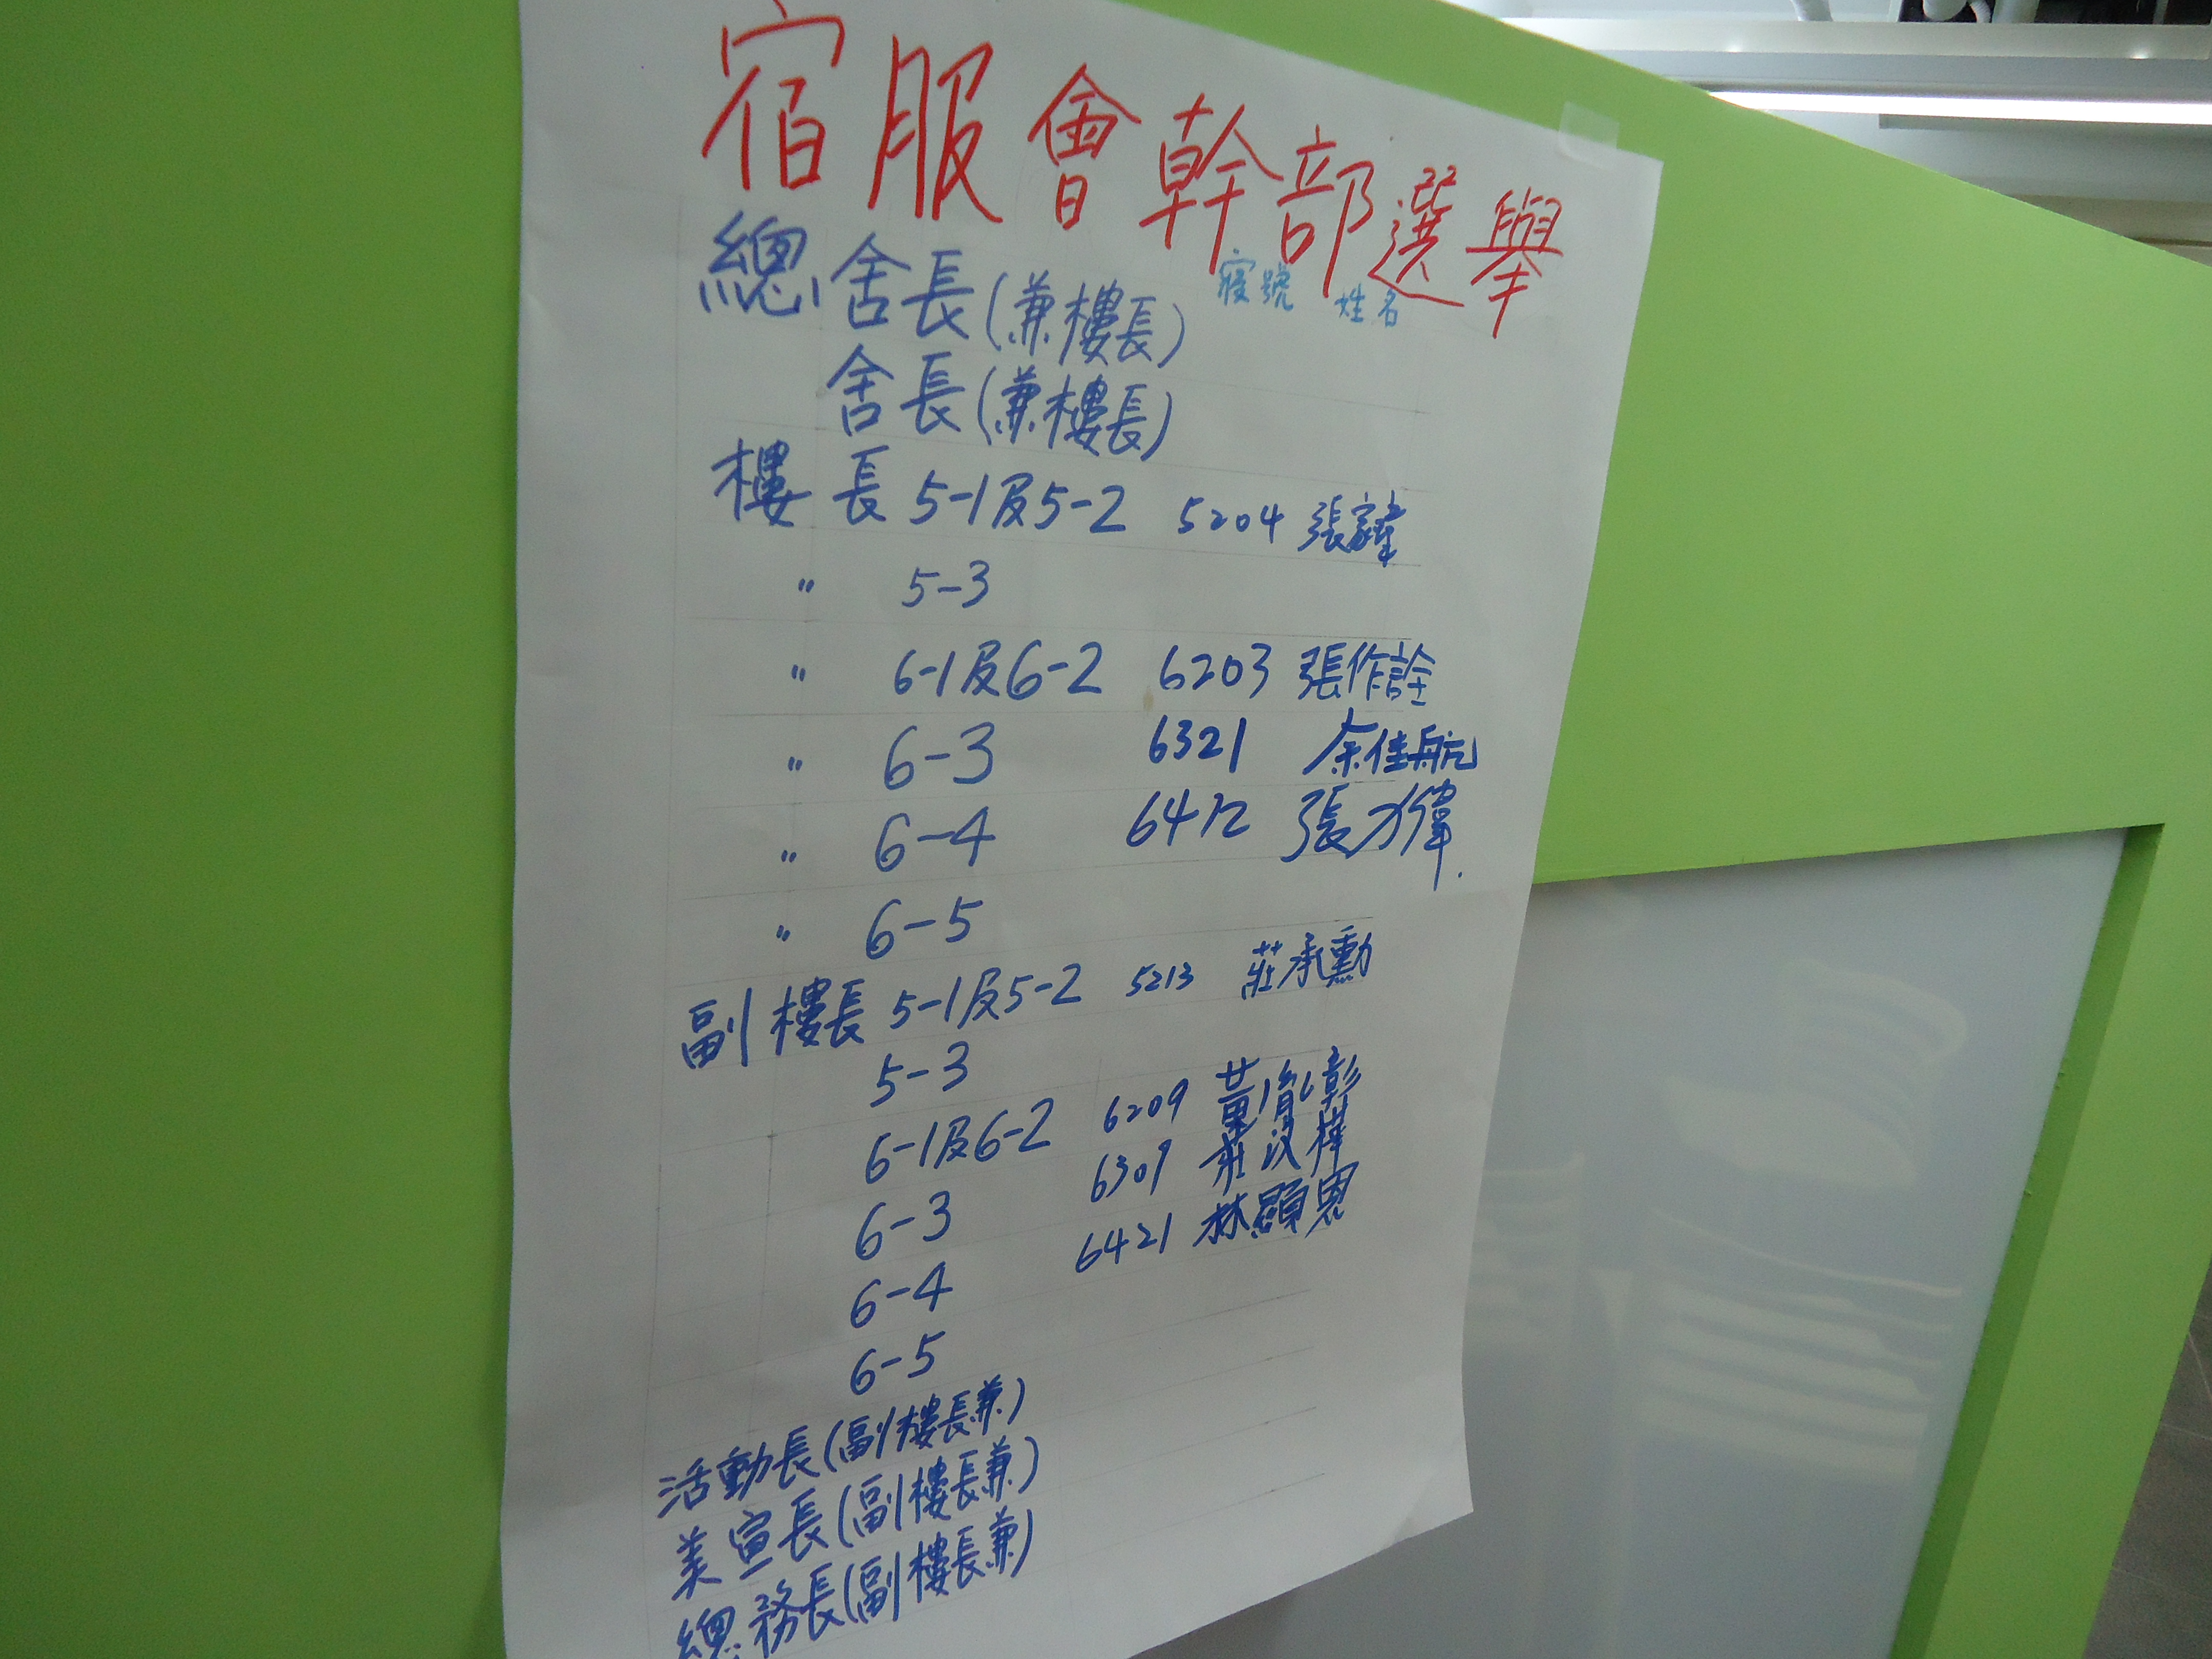 宿服會幹部選舉
寢號 姓名
總舍長(兼樓長)
舍長(兼樓長)
樓長 5-1及5-2 5204 張家瑋
〃 5-3
〃 6-1及6-2 6203 張作詮
〃 6-3 6321 余佳航
〃 6-4 6412 張力偉
〃 6-5
副樓長 5-1及5-2 5213 莊承勳
5-3
6-1及6-2 6209 黃彰
6-3 6309 莊汶樺
6-4 6421 林顯恩
6-5
活動長(副樓長兼)
美宣長(副樓長兼)
總務長(副樓長兼)